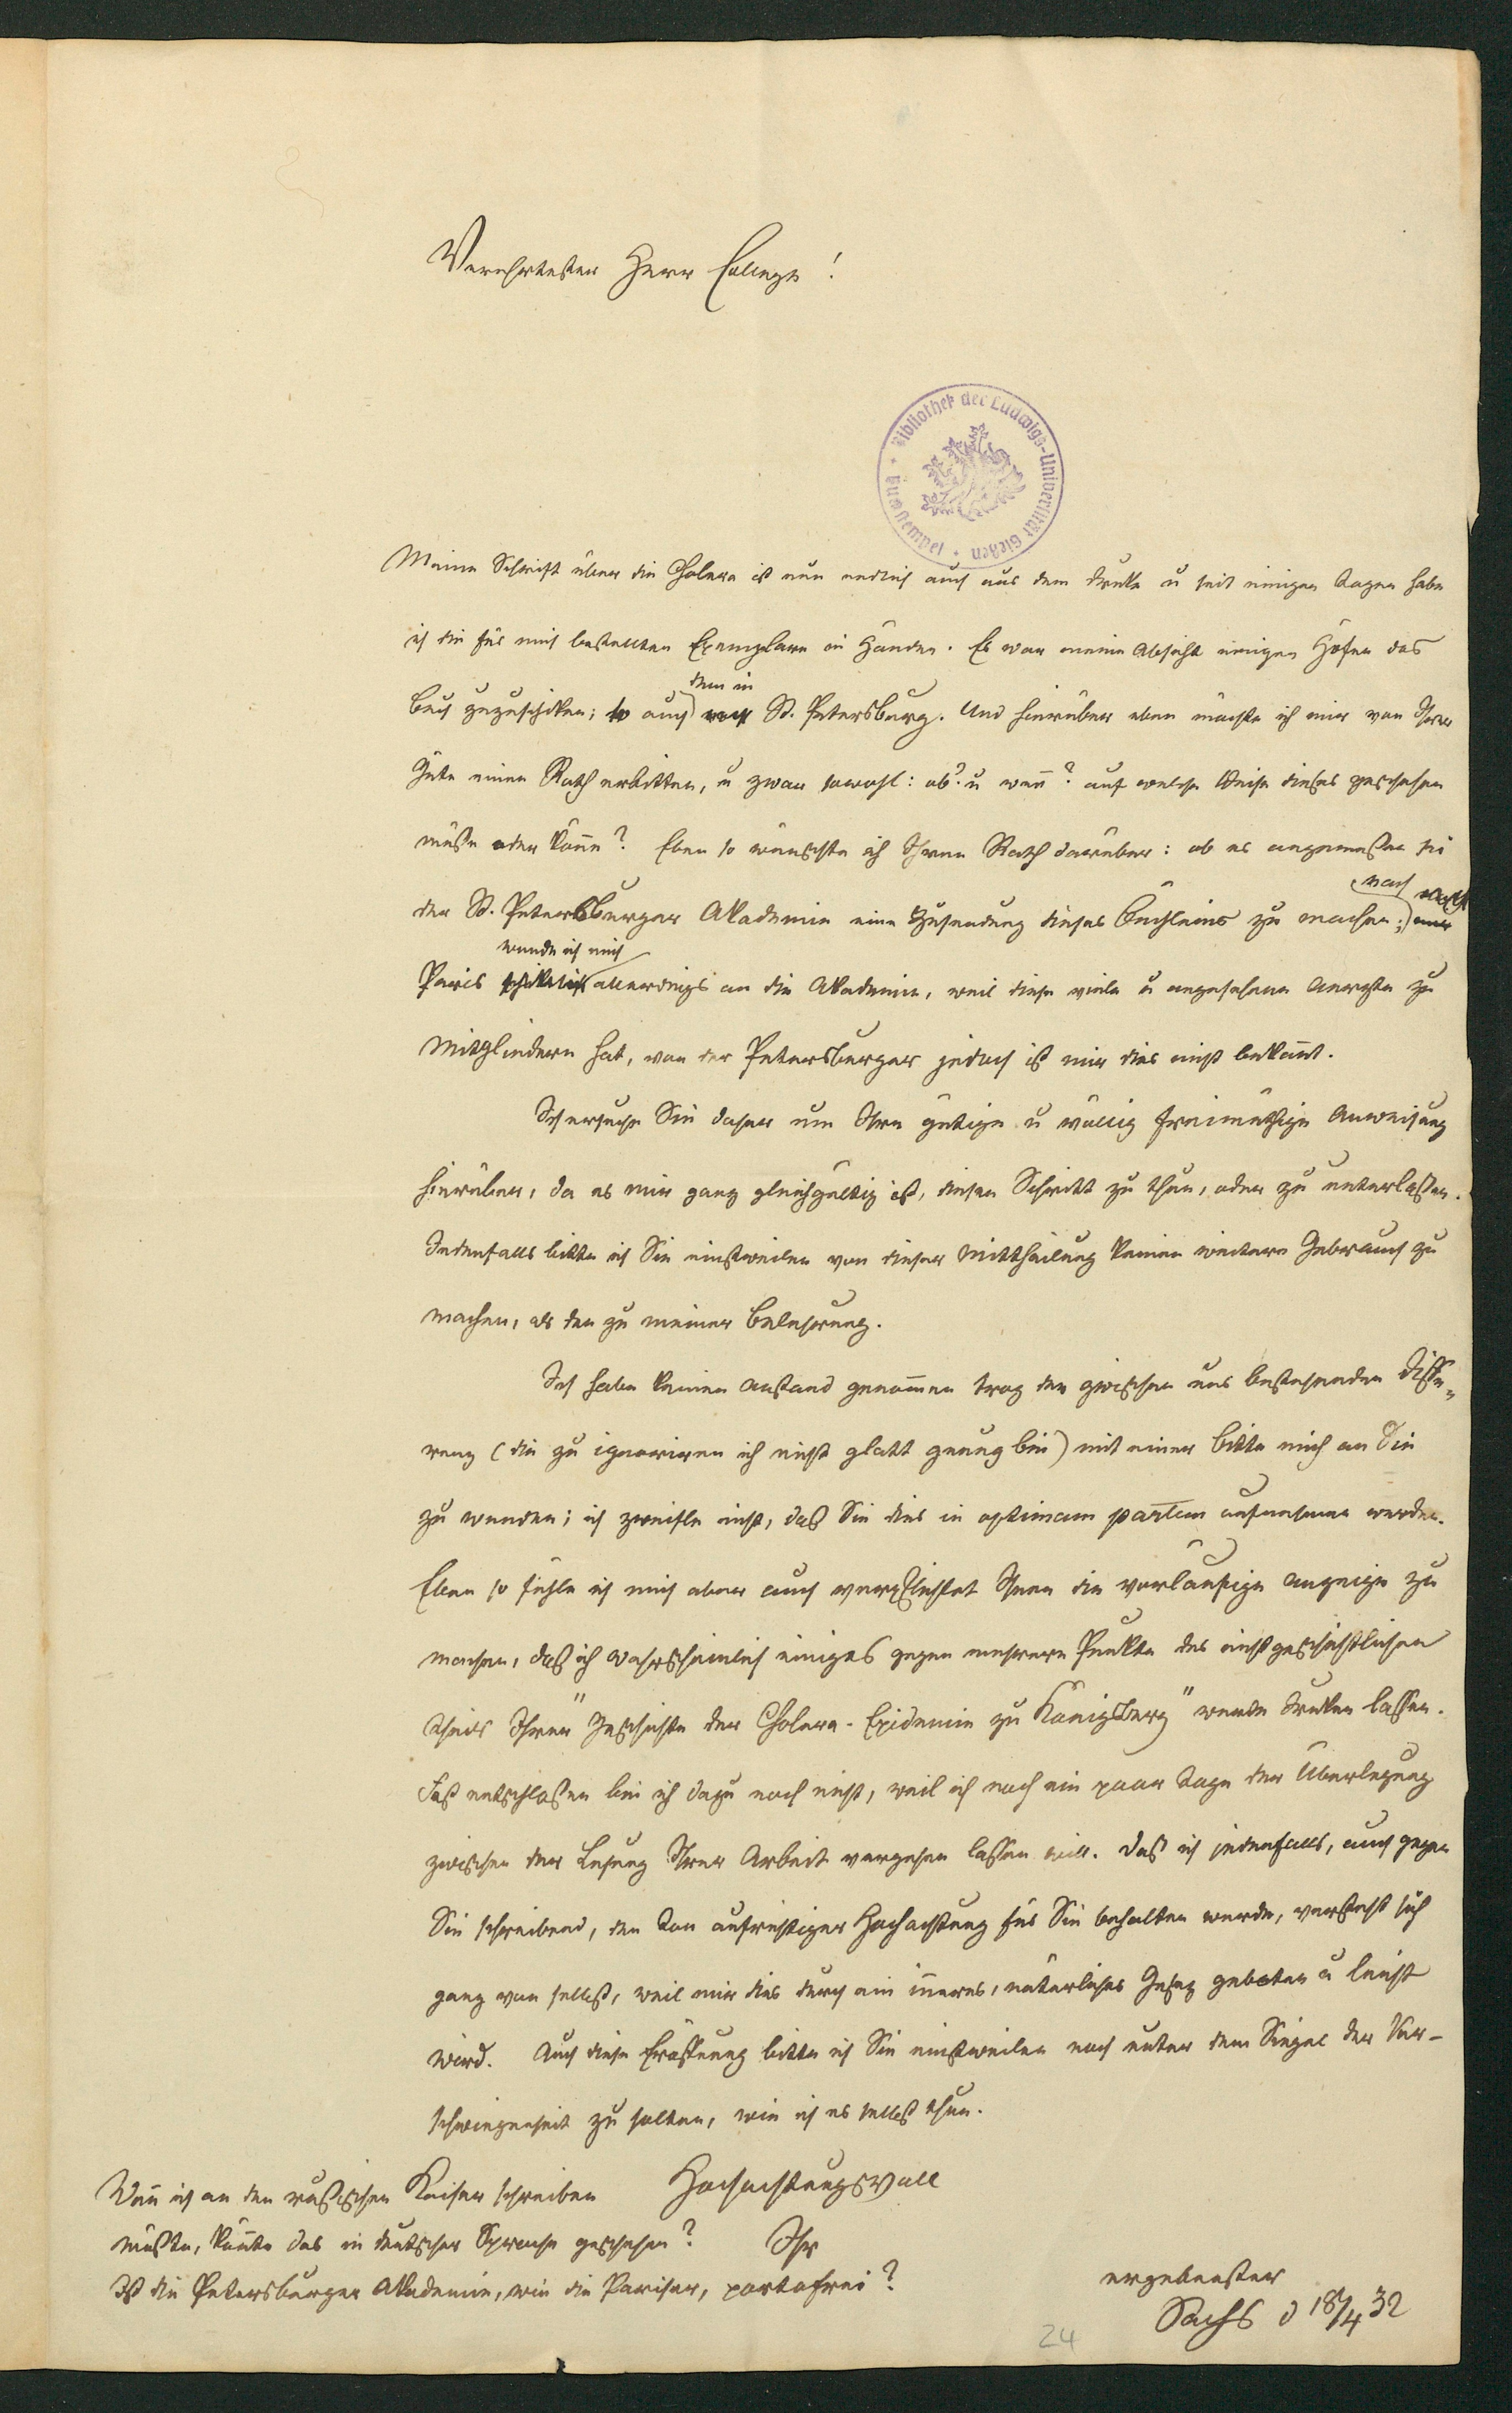 Verehrtester Herr College!
Bibliothek der Ludwigs-Universität Gießen
Meine Schrift über die Cholera ist nun endlich auch aus dem Drucke u seit einigen Tagen habe
ich die für mich bestellten Exemplare in Händen. Es war meine Absicht einigen Höfen das
dem in
Buch zuzuschicken; so auch nach St. Petersburg. Und hierüber eben möchte ich mir von Ihrer
Güte einen Rath erbitten, u zwar sowohl: ob? u wenn? auf welche Weise dieses geschehen
müße oder könne? Eben so wünschte ich Ihren Rath darüber: ob es angemeßen sei
nach
der St. Petersburger Akademie eine Zusendung dieses Büchleins zu machen;
wende ich mich
Paris allerdings an die Akademie, weil diese viele u angesehene Aerzte zu
Mitgliedern hat, von der Petersburger jedoch ist mir dies nicht bekannt.
Ich ersuche Sie daher um Ihre gütige u völlig freimüthige Anweisung
hierüber, da es mir ganz gleichgültig ist, diesen Schritt zu thun, oder zu unterlaßen.
Jedenfalls bitte ich Sie einstweilen von dieser Mittheilung keinen weitern Gebrauch zu
machen, als den zu meiner Belehrung.
Ich habe keinen Anstand genommen trotz der zwischen uns bestehenden Diffe-
renz (die zu ignoriren ich nicht glatt genug bin) mit einer Bitte mich an Sie
zu wenden; ich zweifle nicht, daß Sie dies in optimam partem aufnehmen werden.
Eben so fühle ich mich aber auch verpflichtet Ihnen die vorläufige Anzeige zu
machen, daß ich wahrscheinlich einiges gegen mehrere Punkte des nichtgeschichtlichen
Theils Ihrer "Geschichte der Cholera-Epidemie zu Königsberg" werde drucken lassen.
Fest entschloßen bin ich dazu noch nicht, weil ich noch ein paar Tage der Überlegung
zwischen der Lesung Ihrer Arbeit vergehen lassen will. Daß ich jedenfalls, auch gegen
Sie schreibend, den Ton aufrichtiger Hochachtung für Sie behalten werde, versteht sich
ganz von selbst, weil mir dies durch ein inneres, natürliches Gesetz geboten u leicht
wird. Auch diese Eröffnung bitte ich Sie einstweilen noch unter dem Siegel der Ver-
schwiegenheit zu halten, wie ich es selbst thue.
Hochachtungsvoll
Ihr
ergebenster
Sachs d 18/4 32
Wenn ich an den rußischen Kaiser schreiben
müßte, könnte das in deutscher Sprache geschehen?
Ist die Petersburger Akademie, wie die Pariser, portofrei?
24